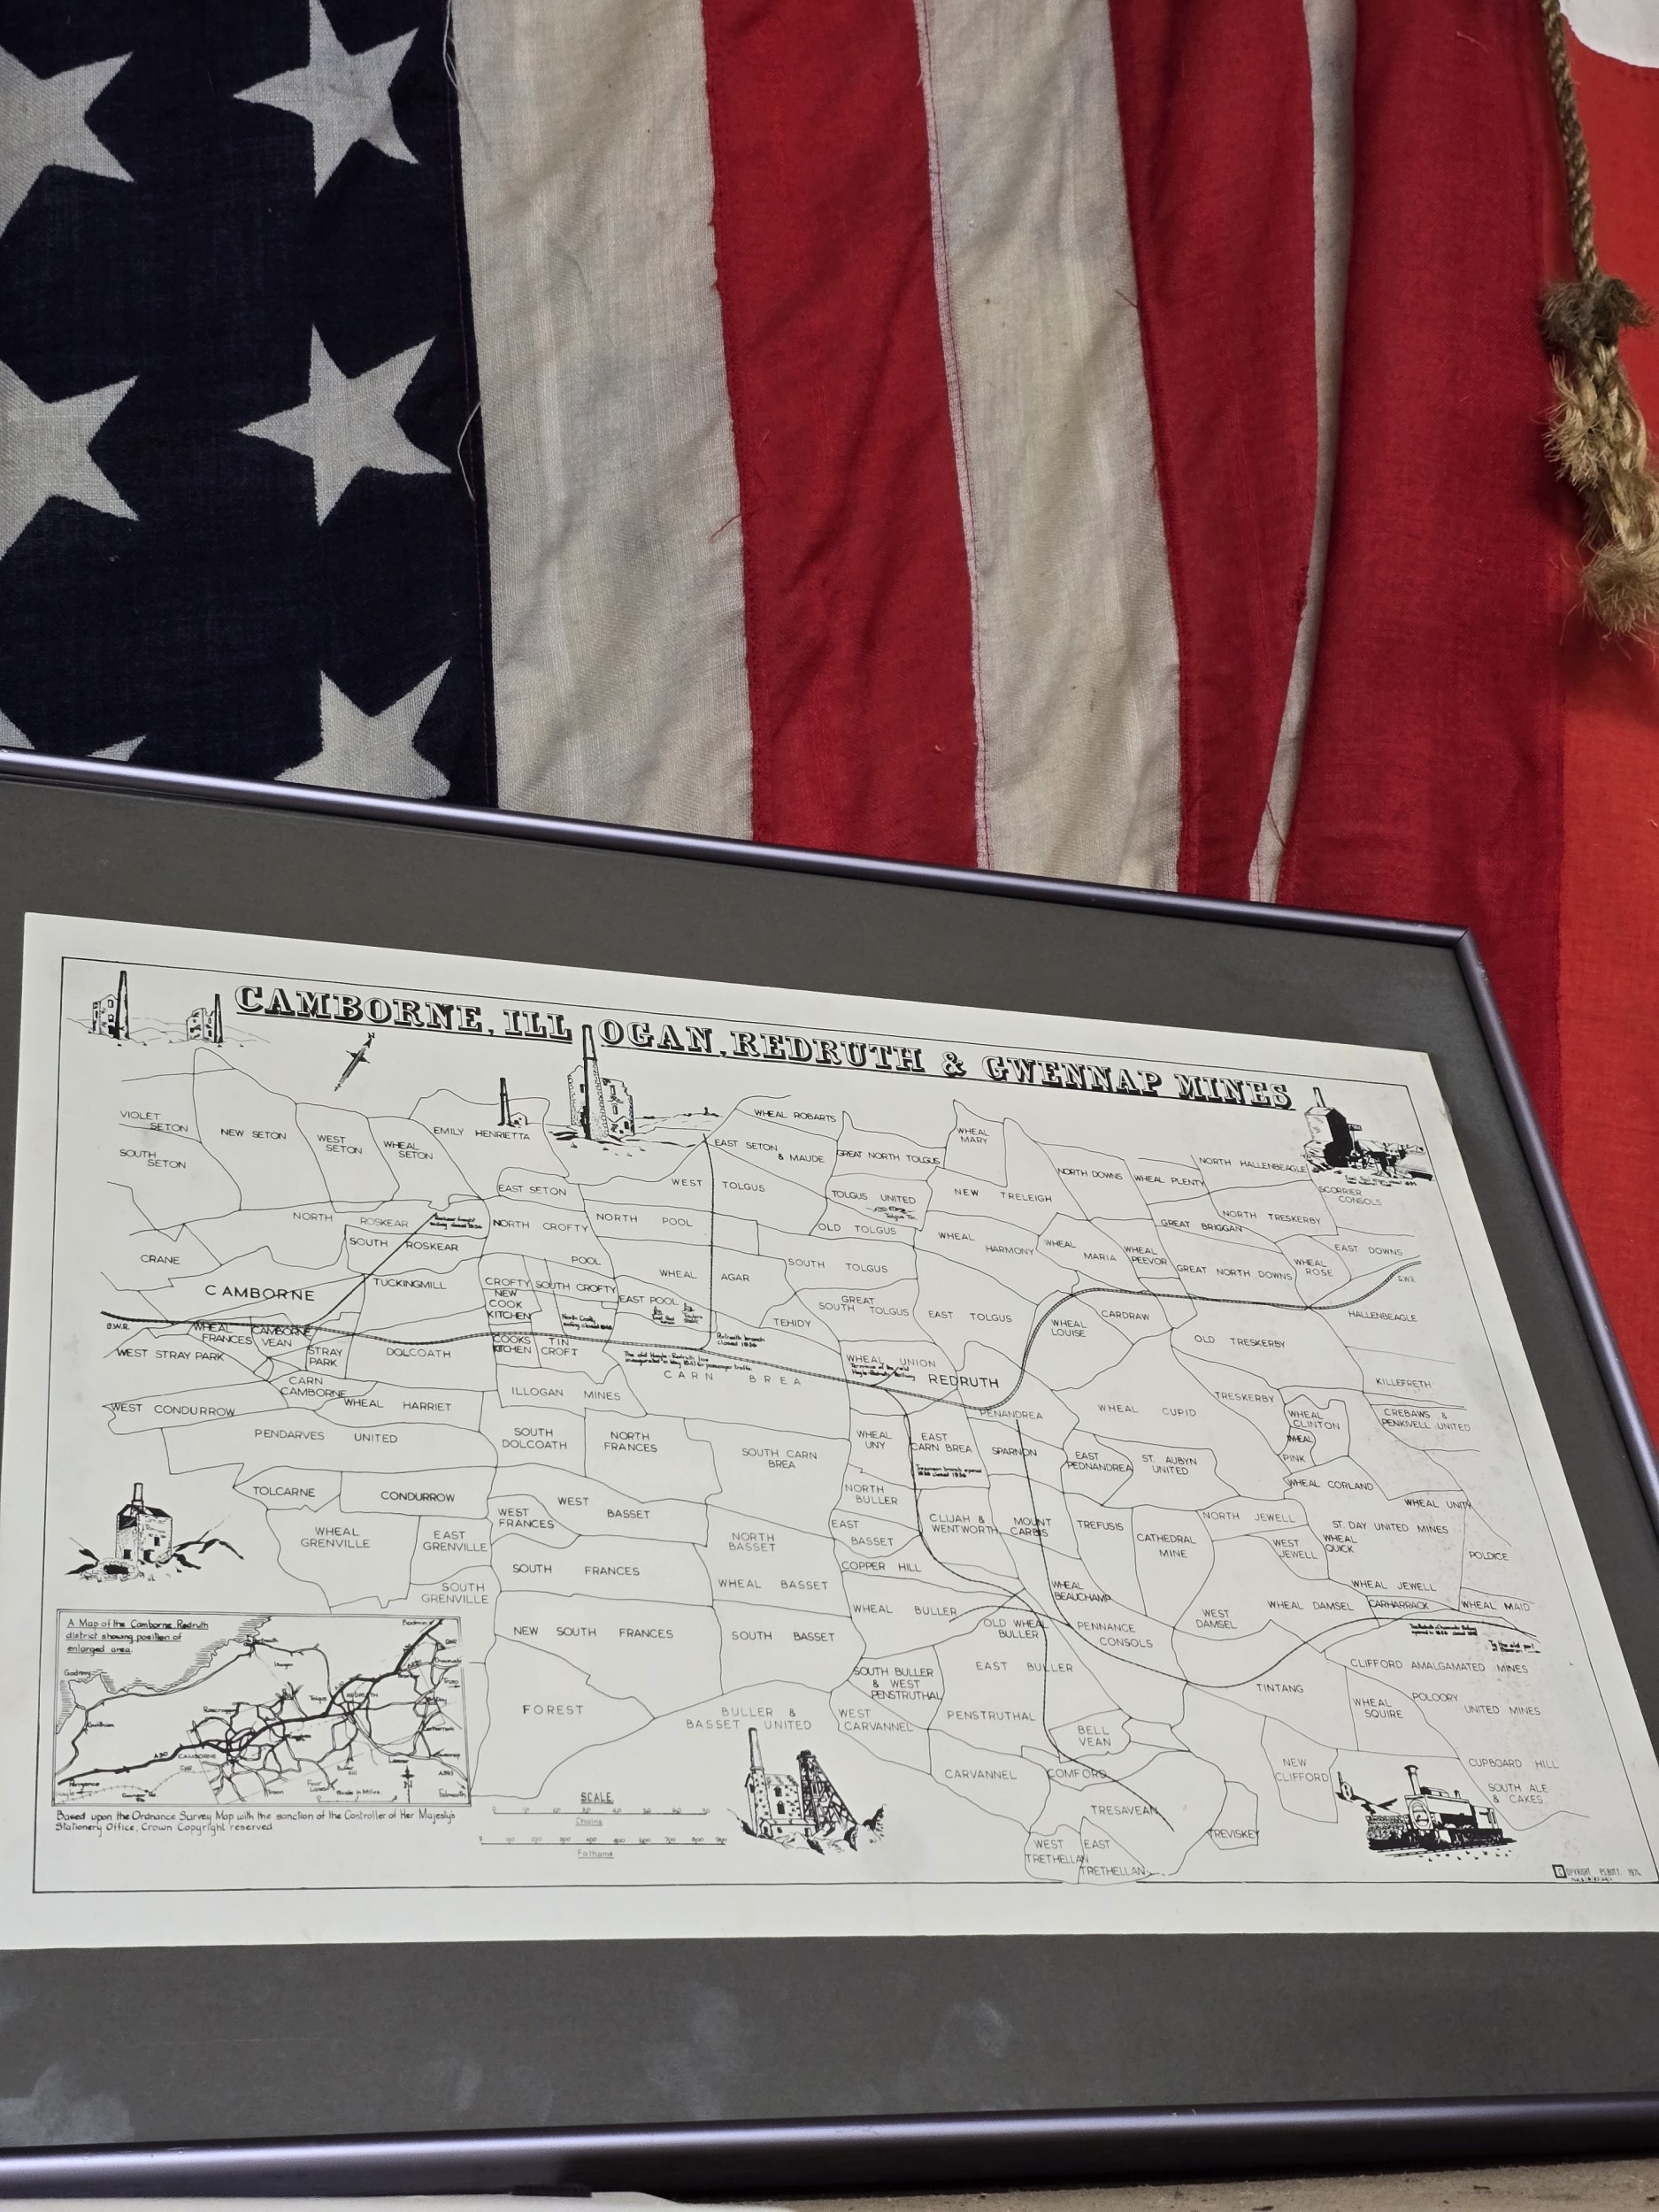 CAMBORNE, ILLOGAN, REDRUTH & GWENNAP MINES
VIOLET
SETON
SOUTH
SETON
NEW SETON
WEST
SETON
WHEAL
SETON
EMILY HENRIETTA
WHEAL ROBARTS
EAST SETON
& MAUDE
GREAT NORTH TOLGUS
WHEAL
MARY
NORTH DOWNS
WHEAL PLENTY
NORTH HALLENBEAGLE
SCORRIER
CONSOLS
EAST SETON
WEST TOLGUS
TOLGUS UNITED
Tolgus Tin.
NEW TRELEIGH
NORTH TRESKERBY
GREAT BRIGGAN
NORTH ROSKEAR
NORTH CROFTY
NORTH POOL
OLD TOLGUS
WHEAL HARMONY
WHEAL MARIA
WHEAL
PEEVOR
EAST DOWNS
CRANE
SOUTH ROSKEAR
POOL
WHEAL AGAR
SOUTH TOLGUS
GREAT NORTH DOWNS
WHEAL
ROSE
G.W.R.
CAMBORNE
TUCKINGMILL
CROFTY
SOUTH CROFTY
NEW
COOK
KITCHEN
EAST POOL
GREAT
SOUTH TOLGUS
EAST TOLGUS
CARDRAW
HALLENBEAGLE
TEHIDY
WHEAL
LOUISE
OLD TRESKERBY
G.W.R.
WHEAL
FRANCES
CAMBORNE
VEAN
STRAY
PARK
DOLCOATH
COOKS
KITCHEN
TIN
CROFT
Redruth branch
closed 1936
WEST STRAY PARK
The old Hayle-Redruth line
inaugurated in May 1843 for passenger traffic
CARN BREA
WHEAL UNION
REDRUTH
KILLEFRETH
CARN
CAMBORNE
WHEAL HARRIET
ILLOGAN MINES
PENANDREA
WHEAL CUPID
TRESKERBY
WHEAL
CLINTON
WHEAL
PINK
CREBAWS &
PENKIVELL UNITED
WEST CONDURROW
PENDARVES UNITED
SOUTH
DOLCOATH
NORTH
FRANCES
SOUTH CARN
BREA
WHEAL
UNY
EAST
CARN BREA
SPARNON
EAST
PEDNANDREA
ST. AUBYN
UNITED
WHEAL CORLAND
WHEAL UNITY
TOLCARNE
CONDURROW
WEST
FRANCES
WEST BASSET
NORTH
BULLER
CLIJAH &
WENTWORTH
MOUNT
CARBIS
TREFUSIS
CATHEDRAL
MINE
NORTH JEWELL
ST. DAY UNITED MINES
WHEAL
GRENVILLE
EAST
GRENVILLE
NORTH
BASSET
EAST
BASSET
WEST
JEWELL
WHEAL
QUICK
POLDICE
SOUTH FRANCES
COPPER HILL
SOUTH
GRENVILLE
WHEAL BASSET
WHEAL
BEAUCHAMP
WHEAL JEWELL
WHEAL BULLER
WEST
DAMSEL
WHEAL DAMSEL
CARHARRACK
WHEAL MAID
NEW SOUTH FRANCES
SOUTH BASSET
OLD WHEAL
BULLER
PENNANCE
CONSOLS
SOUTH BULLER
& WEST
PENSTRUTHAL
EAST BULLER
CLIFFORD AMALGAMATED MINES
TINTANG
FOREST
BULLER &
BASSET UNITED
WEST
CARVANNEL
PENSTRUTHAL
BELL
VEAN
WHEAL
SQUIRE
POLOORY
UNITED MINES
CARVANNEL
COMFORD
NEW
CLIFFORD
CUPBOARD HILL
SOUTH ALE
& CAKES
TRESAVEAN
TREVISKEY
WEST
TRETHELLAN
EAST
TRETHELLAN
A Map of the Camborne, Redruth
district showing position of
enlarged area.
CAMBORNE
REDRUTH
Scale in Miles
N
Based upon the Ordnance Survey Map with the sanction of the Controller of Her Majesty's
Stationery Office, Crown Copyright reserved
SCALE
Chains
Fathoms